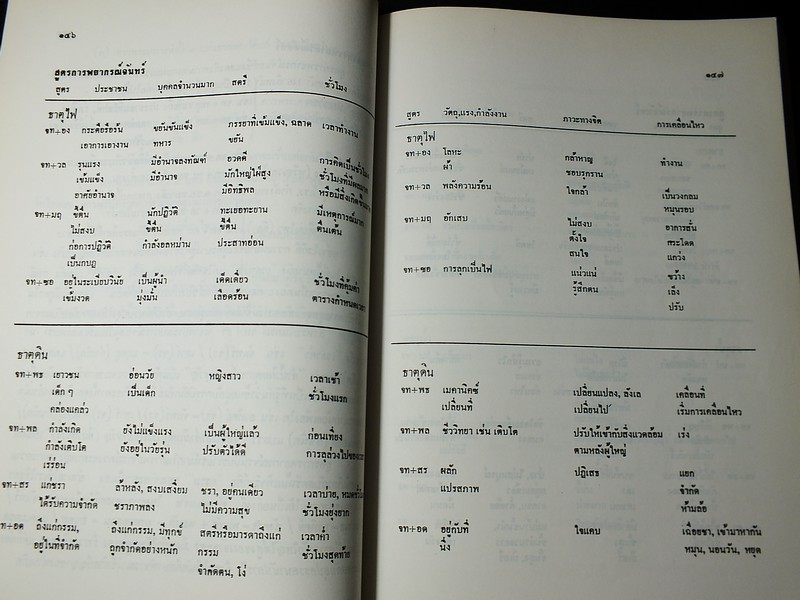 ๑๔๖
สูตรการพยากรณ์จันทร์
สูตร ประชาชน บุคคลจำนวนมาก สตรี ชั่วโมง
ธาตุไฟ
จท+อง กระตือรือร้น ขยันขันแข็ง ภรรยาที่เข้มแข็ง, ฉลาด เวลาทำงาน
เอาการเอางาน ทหาร ขยัน
จท+วล รุนแรง มีอำนาจลงทัณฑ์ อวดดี การคิดเป็นชั่วโมง
เข้มแข็ง มีอำนาจ มักใหญ่ใฝ่สูง ชั่วโมงที่มี
อาศัยอำนาจ มีอิทธิพล หรือมีสิ่งเกิดขึ้น
จท+มฤ ขี้ตื่น นักปฏิวัติ ทะเยอทะยาน มีเหตุการณ์มาก
ไม่สงบ ขี้ตื่น ขี้ตื่น ตื่นเต้น
ก่อการปฏิวัติ กำลังอลหม่าน ประสาทอ่อน
เป็นกบฏ
จท+ซอ อยู่ในระเบียบวินัย เป็นผู้นำ เด็ดเดี่ยว ชั่วโมงที่คุ้มค่า
เข้มงวด มุ่งมั่น เลือดร้อน ตารางกำหนดเวลา
ธาตุดิน
จท+พธ เยาวชน อ่อนวัย หญิงสาว เวลาเช้า
เด็ก ๆ เป็นเด็ก ชั่วโมงแรก
คล่องแคล่ว
จท+พล กำลังเกิด ยังไม่แข็งแรง เป็นผู้ใหญ่แล้ว ก่อนเที่ยง
กำลังเติบโต ยังอยู่ในวัยรุ่น ปรับตัวได้ดี การลุล่วงไปของ
เร่ร่อน
จท+สร แก่ชรา ล้าหลัง, สงบเสงี่ยม ชรา, อยู่คนเดียว เวลาบ่าย,
ได้รับความจำกัด ชราภาพลง ไม่มีความสุข ชั่วโมงยุ่งยาก
จท+อด ถึงแก่กรรม, ถึงแก่กรรม, มีทุกข์ สตรีหรือมารดาถึงแก่ เวลาค่ำ
อยู่ในที่จำกัด ถูกจำกัดอย่างหนัก กรรม ชั่วโมงสุดท้าย
จำกัดตน, โง่
๑๔๗
สูตร วัตถุ,แรง,กำลังงาน ภาวะทางจิต การเคลื่อนไหว
ธาตุไฟ
จท+อง โลหะ กล้าหาญ ทำงาน
ผ้า ชอบรุกราน
จท+วล พลังความร้อน ใจกล้า เป็นวงกลม
หมุนรอบ
จท+มฤ อักเสบ ไม่สงบ อาการสั่น
ตั้งใจ กระโดด
สนใจ แกว่ง
จท+ซอ การลุกเป็นไฟ แน่วแน่ ขว้าง
รู้สึกตน เล็ง
ปรับ
ธาตุดิน
จท+พธ เมคานิคซ์ เปลี่ยนแปลง, ลังเล เคลื่อนที่
เปลี่ยนที่ เปลี่ยนไป เริ่มการเคลื่อนไหว
จท+พล ชีววิทยา เช่น เติบโต ปรับให้เข้ากับสิ่งแวดล้อม เร่ง
ตามหลังผู้ใหญ่
จท+สร ผลัก ปฏิเสธ แยก
แปรสภาพ จำกัด
ห้ามล้อ
จท+อด อยู่กับที่ ใจแคบ เฉื่อยชา, เข้ามาหากัน
นิ่ง หมุน, นอนวัน, หยุด